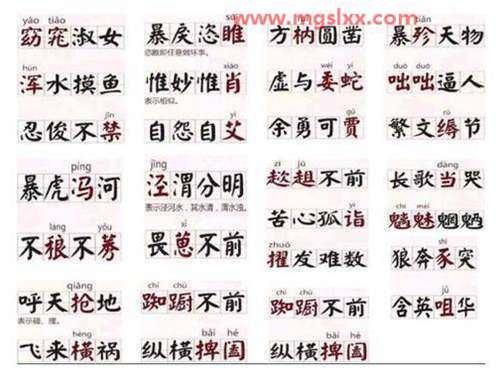 www.mgslxx.com
yǎo tiǎo
窈窕淑女
suī
暴戾恣睢
恣睢即任意做坏事。
ruì
方枘圆凿
tiǎn
暴殄天物
hún
浑水摸鱼
xiào
惟妙惟肖
表示相似。
wēi yí
虚与委蛇
duō duō
咄咄逼人
jīn
忍俊不禁
yì
自怨自艾
gǔ
余勇可贾
rù
繁文缛节
píng
暴虎冯河
jīng
泾渭分明
表示泾河水，其水清，渭水浊。
zī jū
趑趄不前
dàng
长歌当哭
láng yǒu
不稂不莠
xǐ
畏葸不前
yì
苦心孤诣
魑魅魍魉
zhuó
擢发难数
狼奔豕突
qiāng
呼天抢地
表示碰、撞。
chí chú
踟蹰不前
chí chú
踟蹰不前
jǔ
含英咀华
hèng
飞来横祸
bǎi hé
纵横捭阖
bǎi hé
纵横捭阖